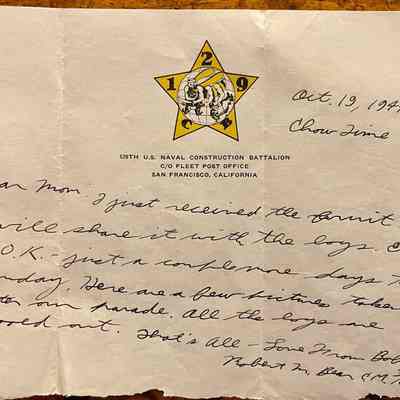 1 2 9
C B
129TH U.S. NAVAL CONSTRUCTION BATTALION
C/O FLEET POST OFFICE
SAN FRANCISCO, CALIFORNIA
Oct. 19, 194
Chow Time
ear Mom, I just received the fruit
will share it with the boys.
O.K. - just a couple more days t
nday. Here are a few pictures taken
our parade. All the boys are
out. That's All - Love From Bob
Robert M.